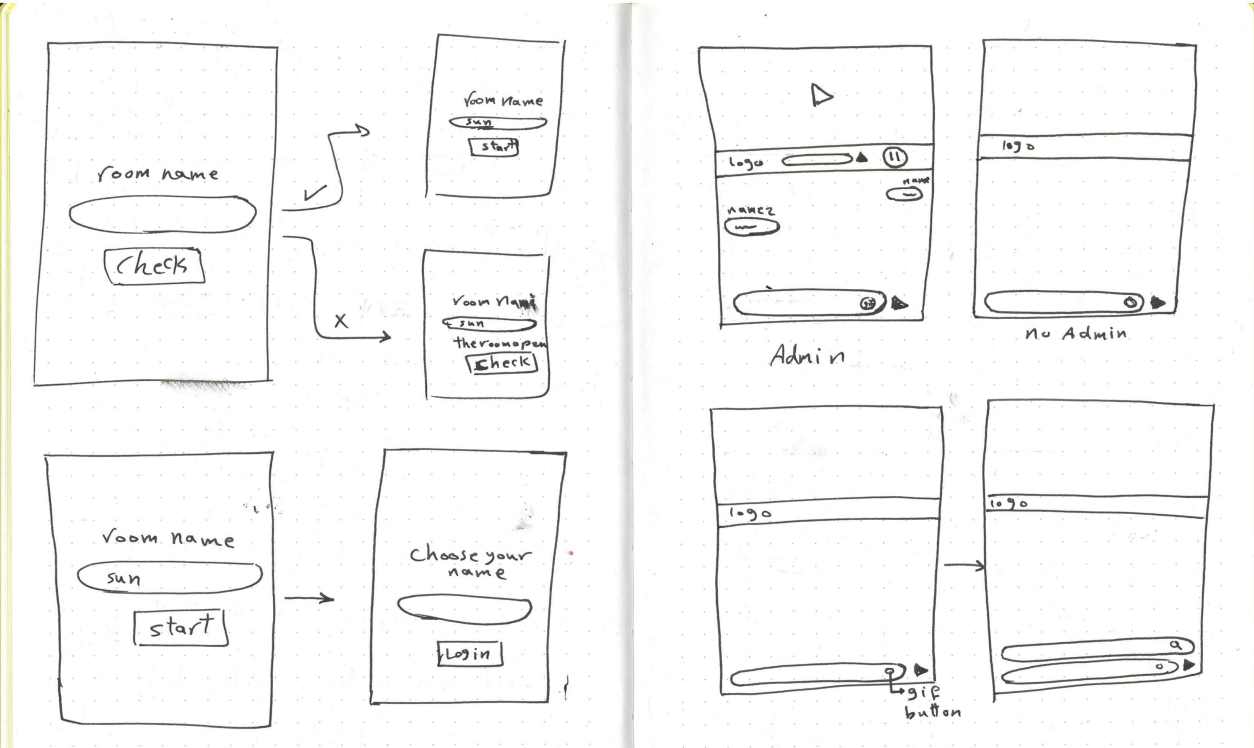 room name
check
✓
x
room name
sun
start
room name
sun
the room open
check
room name
sun
start
choose your
name
Login
Logo
name
name2
Admin
logo
no Admin
logo
gif
button
logo